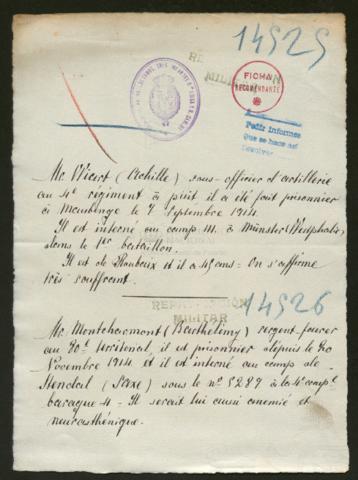 14525
FICHA
RECOMENDANTE
MILITAR
Pedir informes
que se hace así
Mr. Wicart (Achille) sous-officier d'artillerie
au 4e régiment à pied il a été fait prisonnier
à Maubeuge le 7 Septembre 1914
Il est interné au camp III. à Münster (Westphalie)
dans le 1er bataillon.
Il est de Roubaix et il a 45 ans - On s'affirme
très souffrant.
14526
REPATRIACION
MILITAR
Mr. Montcharmont (Barthélémy) sergent-fourrier
au 20e territorial, il est prisonnier depuis le 20
Novembre 1914 et il est interné au camp de
Stendal (Saxe) sous le no 5227 à la 4e compie
baraque 4 - Il serait lui aussi anémié et
neurasthénique.